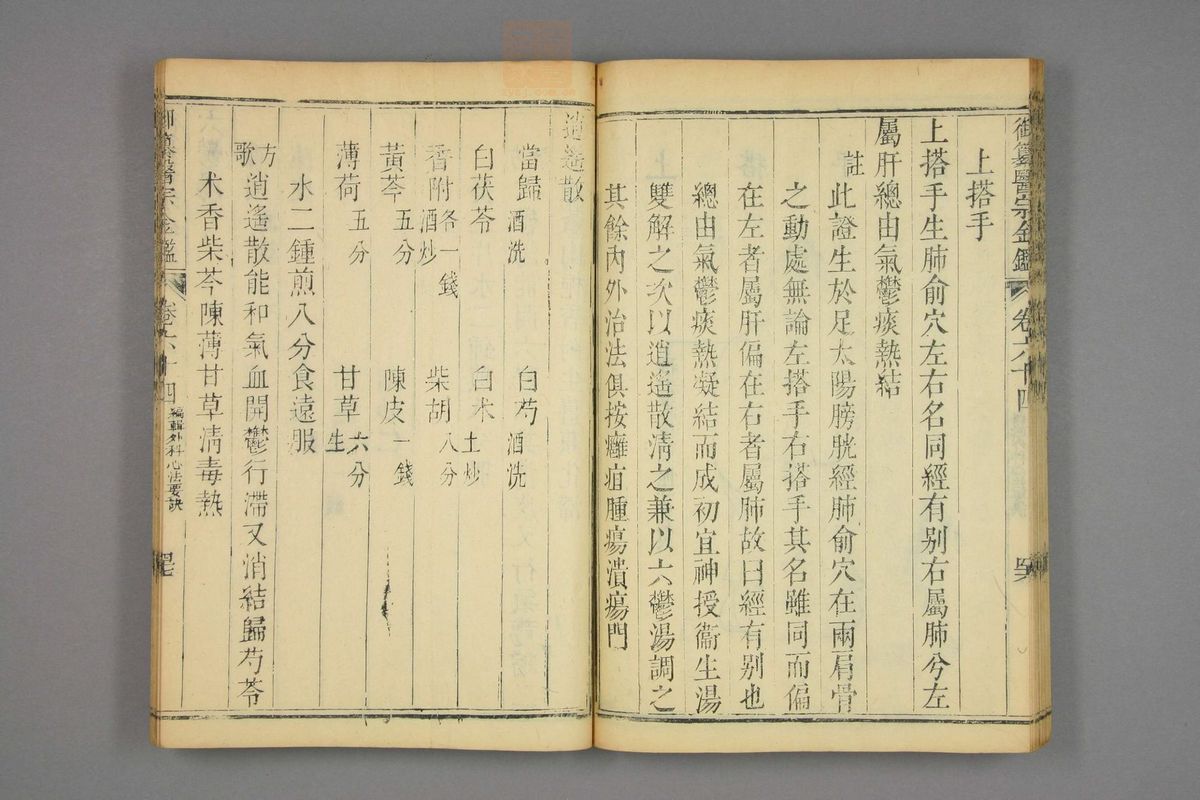 御纂醫宗金鑑 卷六十四
上搭手
上搭手生肺俞穴左右名同經有别右屬肺兮左
屬肝總由氣鬱痰熱結
註此證生於足太陽膀胱經肺俞穴在兩肩骨
之動處無論左搭手右搭手其名雖同而偏
在左者屬肝偏在右者屬肺故曰經有别也
總由氣鬱痰熱凝結而成初宜神授衞生湯
雙解之次以逍遙散清之兼以六鬱湯調之
其餘内外治法俱按癰疽腫瘍潰瘍門
逍遙散
當歸酒洗 白芍酒洗
白茯苓 白术土炒
香附酒炒各一錢 柴胡八分
黃芩五分 陳皮一錢
薄荷五分 甘草生六分
水二鍾煎八分食遠服
方歌逍遙散能和氣血開鬱行滯又消結歸芍苓
术香柴芩陳薄甘草清毒熱
御纂醫宗金鑑 卷六十四 編輯外科心法要訣